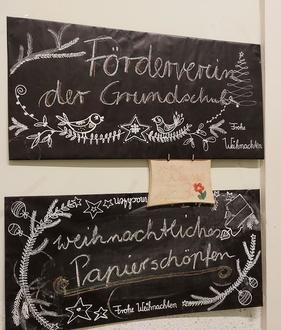 Förderverein
der Grundschule
Frohe
Weihnachten
weihnachtliches
Papierschöpfen
Frohe Weihnachten